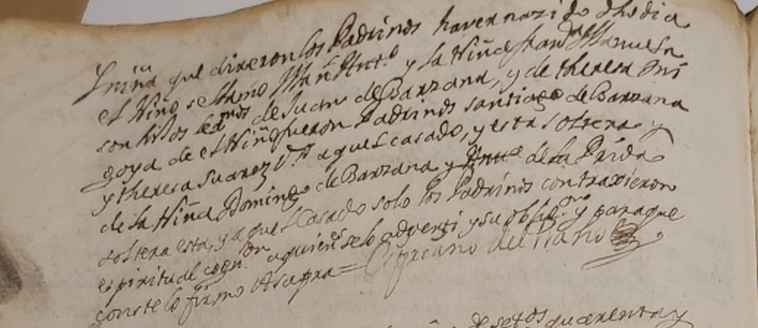 y niña que dixeron los Padrinos haver nazido dho dia
el Niño se llamo Manl. Antt.o y la Niña Fran.ca Manuela
son hijos legmos de Juan de Barzana, y de theresa
goya, de el Niño fueron Padrinos santiago de Barzana
y theresa Suarez Vs. aquel casado, y esta soltera y
de la Niña Domingo de Barzana y de la Prida
soltera esta, y aquel Casado solo los Padrinos contraxieron
espiritual cogn.on a quienes se lo adverti y su oblig.on y para que
conste lo firmo Vt supra = Cipriano del Llano
de setos. quarenta y